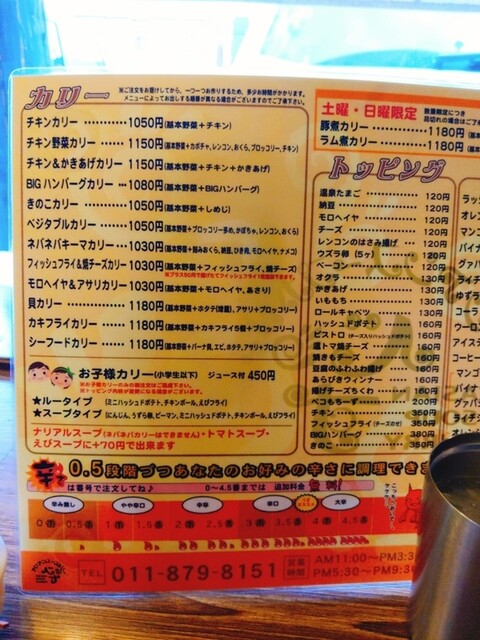 カリー
※ご注文をお受けしてから、一つ一つお作りするため、多少お時間がかかります。
メニューによってお出しする順番が異なる場合がございますのでご了承下さい。
チキンカリー ………… 1050円(基本野菜+チキン)
チキン野菜カリー …… 1150円(基本野菜+カボチャ、レンコン、おくら、ブロッコリー、チキン)
チキン&かきあげカリー 1150円(基本野菜+チキン+かきあげ)
BIGハンバーグカリー … 1080円(基本野菜+BIGハンバーグ)
きのこカリー ………… 1050円(基本野菜+しめじ)
ベジタブルカリー …… 1050円(基本野菜+ブロッコリー多め、かぼちゃ、レンコン、おくら)
ネバネバキーマカリー … 1030円(基本野菜+刻みおくら、納豆、ひき肉、モロヘイヤ、ナメコ)
フィッシュフライ&焼チーズカリー 1030円(基本野菜+フィッシュフライ、焼チーズ)
※プラス50円で揚げたてフィッシュフライ別皿盛できます。
モロヘイヤ&アサリカリー 1030円(基本野菜+モロヘイヤ、あさり)
貝カリー …………… 1180円(基本野菜+ホタテ(増量)、アサリ+ブロッコリー)
カキフライカリー …… 1180円(基本野菜+カキフライ5個+ブロッコリー)
シーフードカリー …… 1180円(基本野菜+パーナ貝、エビ、ホタテ、アサリ+ブロッコリー)
お子様カリー(小学生以下) ジュース付 450円
※お子様カリーのみの御注文はご遠慮下さい。
※トッピング内容が変更になる場合がございます。
★ルータイプ (ミニハッシュドポテト、チキンボール、えびフライ)
★スープタイプ (にんじん、うずら卵、ピーマン、ミニハッシュドポテト、チキンボール、えびフライ)
ナリアルスープ(ネバネバカリーはできません)・トマトスープ・
えびスープに+70円で出来ます
土曜・日曜限定
数量限定につき
品切れの場合はご了
豚煮カリー ………… 1180円(基本
ラム煮カリー ……… 1180円(基本
トッピング
温泉たまご 120円
納豆 120円
モロヘイヤ 120円
チーズ 120円
レンコンのはさみ揚げ 120円
ウズラ卵(5ヶ) 120円
ベーコン 120円
オクラ 130円
かきあげ 130円
いももち 130円
ロールキャベツ 130円
ハッシュドポテト 160円
ピストロ(チーズ入りハッシュドポテト) 160円
温トマ揚チーズ 160円
焼きもチーズ 160円
豆腐のふわふわ揚げ 160円
あらびきウィンナー 160円
揚げチーズちくわ 160円
ベコもちーず 300円
チキン 350円
フィッシュフライ(チーズのせ) 350円
BIGハンバーグ 380円
きのこ 350円
辛さ
0.5段階づつあなたのお好みの辛さに調理できま
は番号で注文してね♪ 0〜4.5番までは 追加料金 無料!
辛み無し やや辛口 中辛 辛口 大辛
0番 0.5 1番 1.5 2番 2.5 3番 3.5 4番 4.5
TEL 011-879-8151
営業時間
AM11:00〜PM3:3
PM5:30〜PM9:30